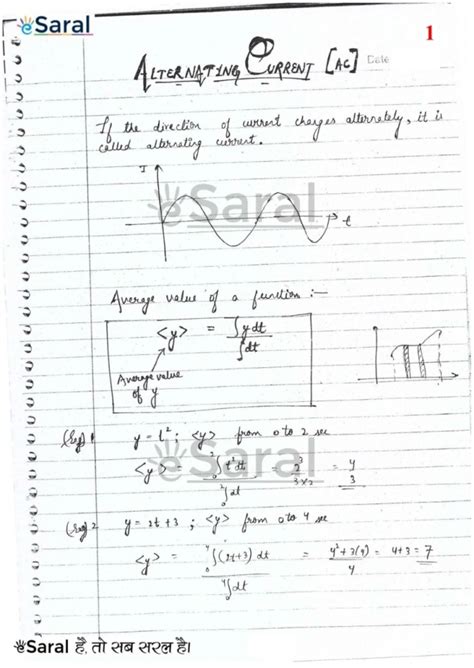 eSaral
1
ALTERNATING CURRENT [AC] Date
If the direction of current changes alternately, it is
called alternating current.
I
eSaral
t
Average value of a function :-
<y> = ∫ydt / ∫dt
Average value
of y
(Eg) 1 y = t²; <y> from 0 to 2 sec
<y> = ₀∫² t² dt / ₀∫² dt = 2³ / 3×2 = 4 / 3
eSaral
(Eg) 2 y = 2t + 3 ; <y> from 0 to 4 sec
<y> = ₀∫⁴ (2t+3) dt / ₀∫⁴ dt = 4² + 3(4) / 4 = 4+3 = 7
eSaral है, तो सब सरल है।